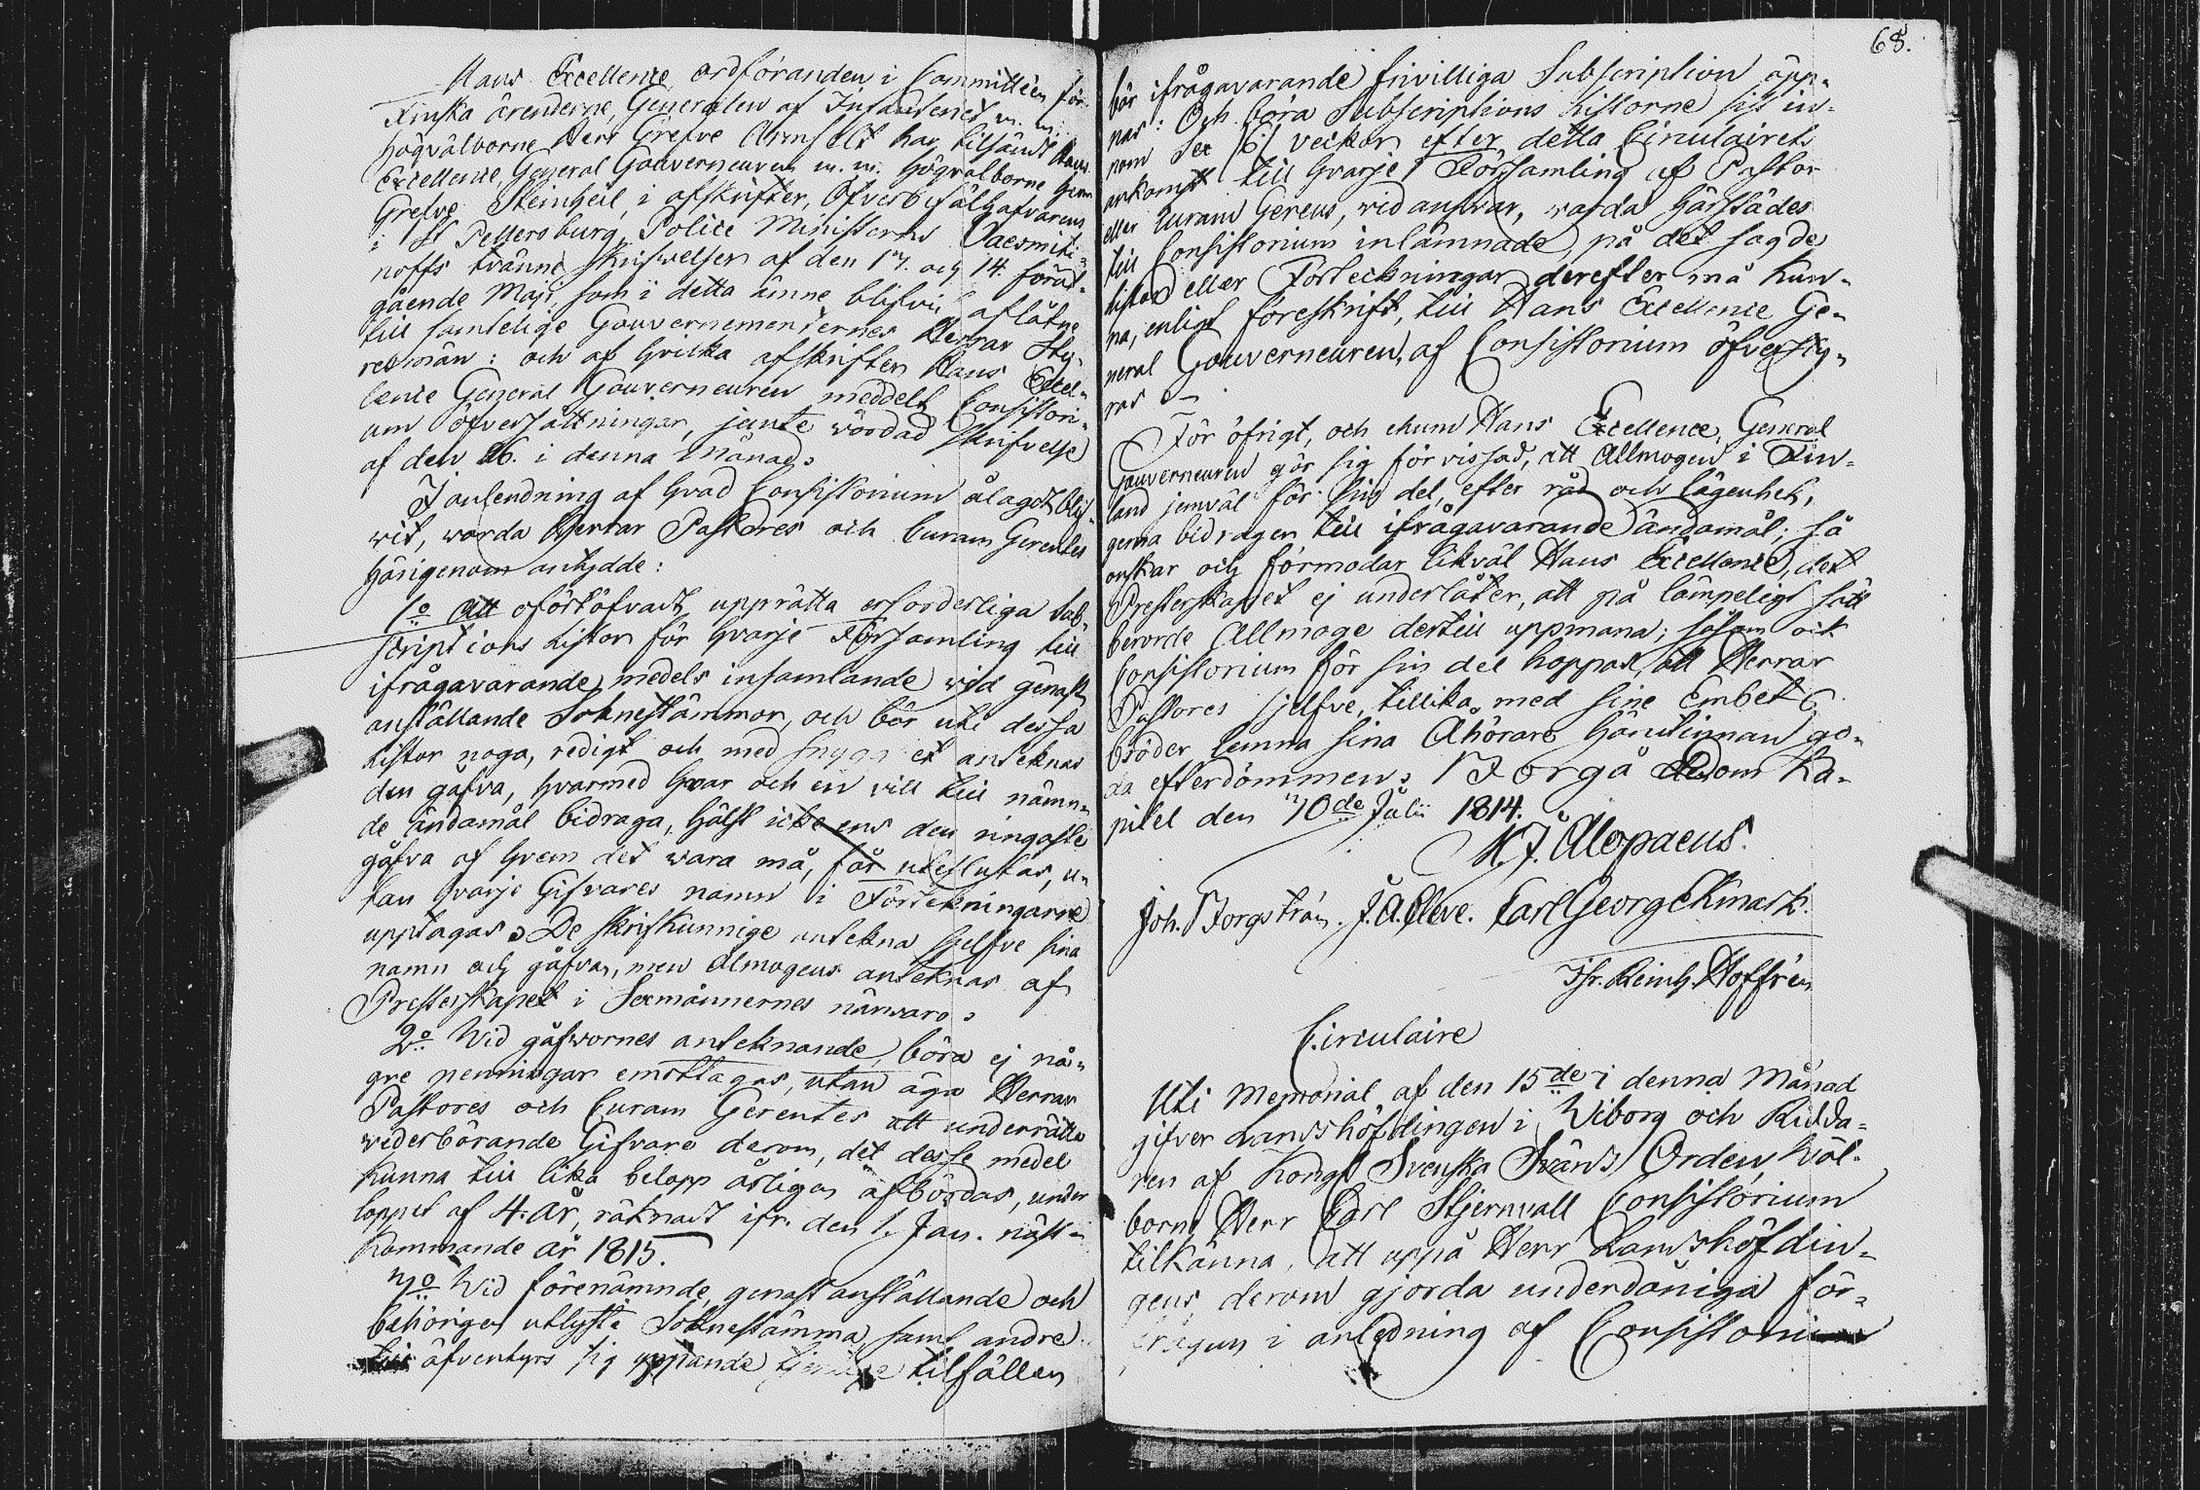 Hans Excellence, ordföranden i Committéen för
Finska ärenderne, Generalen af Infanteriet m. m.
högvälborne Herr Grefve Armfelt har tilsändt Hans
Excellence, General Gouverneuren m. m. Högvälborne Herr
Grefve Steinheil, i afskrifter, Öfverbefälhafvarens
i St Pettersburg Police Ministerns Vaesmiti-
noffs tvänne skrifwelser af den 17. och 14. förut-
gående Maji, som i detta ämne blifvit aflåtne
till samtelige Gouvernementernes Herrar Sty-
resmän: och af hvilka afskrifter Hans Excel-
lence General Gouverneuren meddelt Consistori-
um öfversättningar, jemte wördad skrifvelse
af den 26. i denna Månad.
I anlendning af hvad Consistorium ålagdt blif-
wit, warda Herrar Pastores och Curam Gerentes
härigenom antydde:
1:o Att ofördöfvadt upprätta erforderliga Sub-
scriptions Listor för hvarje Församling till
ifrågavarande medels insamlande wid genast
anställande Sokneftämmor, och bör uti dessa
Listor noga, redigt och med snygghet anteknas
den gåfva, hvarmed hvar och en vill till nämn-
de ändamål bidraga, hälst icke ens den ringaste
gåfva af hvem det vara må, får uteslutas, u-
tan hvarje Gifvares namn i Förtekningarne
upptagas. De skrifkunnige antekna sjelfve sina
namn och gåfvor, men Almogens anteknas af
Presterskapet i Sexmännernes närwaro.
2:o Wid gåfwornes anteknande, böra ej nå-
gre penningar emottagas, utan äga Herrar
Pastores och Curam Gerentes att underrätta
wederbörande Gifvare derom, det desse medel
kunna till lika belopp årligen afbördas, under
loppet af 4. år, räknadt ifr. den 1. Jan. näst-
kommande år 1815.
3:o Wid förenämnde, genast anställande och
behörigen utlyste Soknestämma samt andre
äfventyrs sig yppande tjenlige tilfällen
68.
bör ifrågavarande frivilliga Subscription öpp-
nas: Och böra Subscriptions Listorne sist in-
nom Sex /6/ veckor efter detta Circulairets
ankomst till hvarje Församling af Pastor
eller Curam Gerens, wid answar, warda härstädes
till Consistorium inlämnade, på det sagde
listor eller Förteckningar derefter må kun-
na, enligt föreskrift, till Hans Excellence Ge-
neral Gouverneuren, af Consistorium öfversty-
ras
För öfrigt, och ehuru Hans Excellence, General
Gouverneuren gör sig förvissad, att Allmogen i Fin-
land jemväl för sin del, efter råd och lägenhet,
gerna bidrager till ifrågavarande ändamål; så
önskar och förmodar likväl Hans Excellence, det
Presterskapet ej underlåter, att på lämpeligt sätt
berörde Allmoge dertill uppmana; såsom ock
Consistorium för sin del hoppas, att Herrar
Pastores sjelfve, tillika med sine Embets
bröder lemna sina Åhörare härutinnan go-
da efterdömmen. Borgå Dom Ka-
pitel den 10de Julii 1814.
M. J. Alopaeus.
Joh. Borgström. J. A. Cleve. Carl Georg Ekmark.
Chr. Reinh. Hoffrén
Circulaire
Uti Memorial af den 15de i denna Månad
gifver Landshöfdingen i Wiborg och Ridda-
ren af Kongl. Svenska Svärds Orden, Wäl-
borne Herr Carl Stjernvall Consistorium
tilkänna, att uppå Herr Landshöfdin-
gens derom gjorda underdåniga för-
frågan i anledning af Consistorii